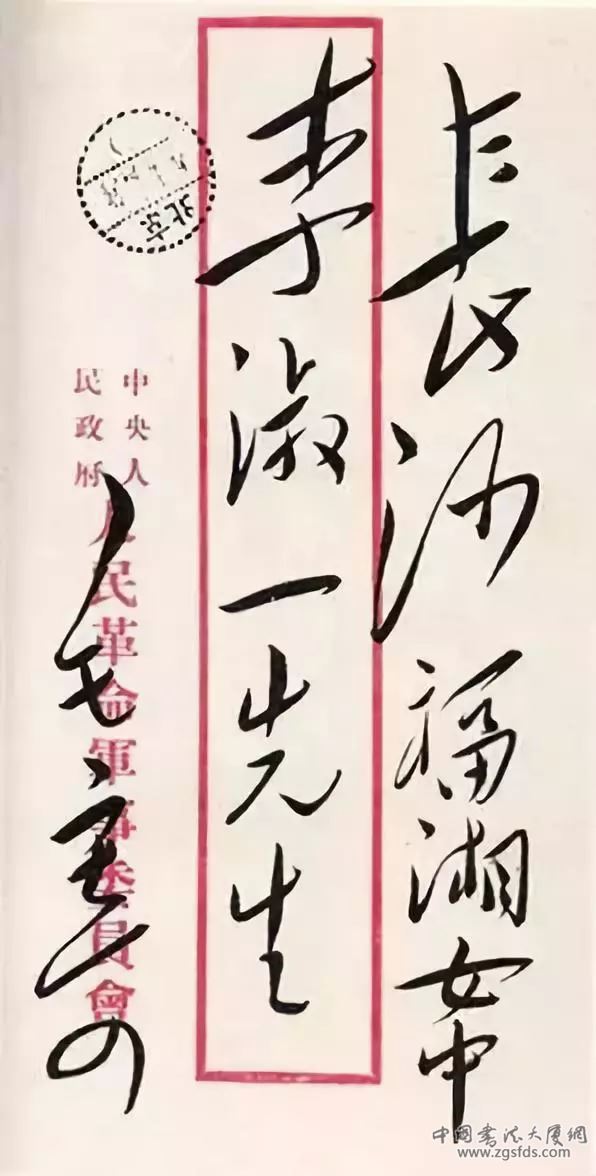 長沙福湘女中
李淑一先生
中央人
民政府
人民革命軍事委員會
毛寄
北京
中國書法大厦網
www.zgsfds.com